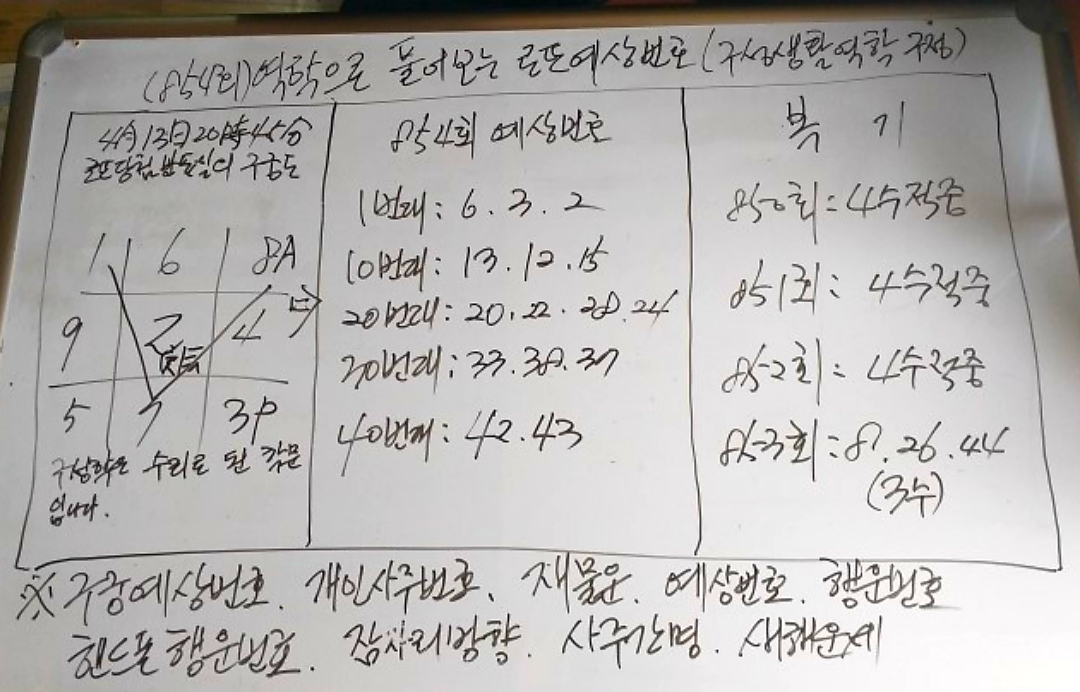 (854회)역학으로 풀어보는 로또예상번호(구성생활역학 구정)
4月13日20時45分
로또당첨 반동실의 구궁도
1 6 8A
9 2 4
5 7 3P
구성학은 수리로 된 학문
입니다.
854회 예상번호
1번대: 6. 3. 2
10번대: 13. 12. 15
20번대: 20. 22. 28. 24
30번대: 33. 38. 37
40번대: 42. 43
복 기
850회: 4수적중
851회: 4수적중
852회: 4수적중
853회: 8. 26. 44
(3수)
※ 구궁예상번호. 개인사주번호. 재물운. 예상번호. 행운번호
핸드폰행운번호. 잠자리방향. 사주간명. 새해운세